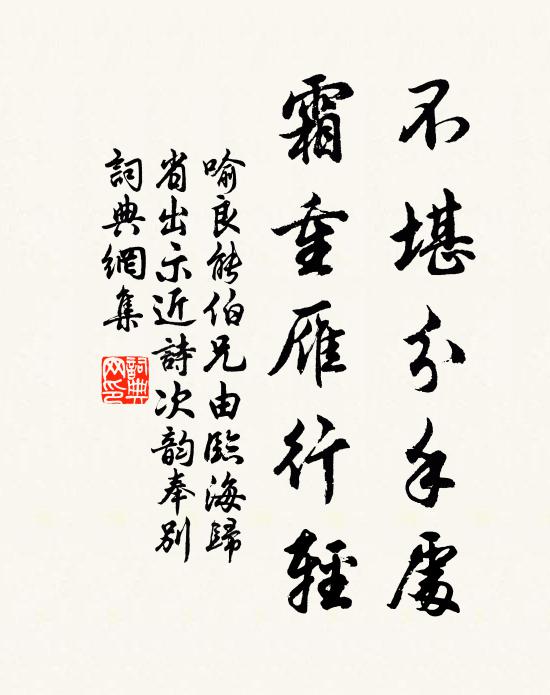 不堪分手處
霜重雁行輕
喻良能伯兄由臨海歸
省出示近詩次韵奉別
詞典網集
詞典网印